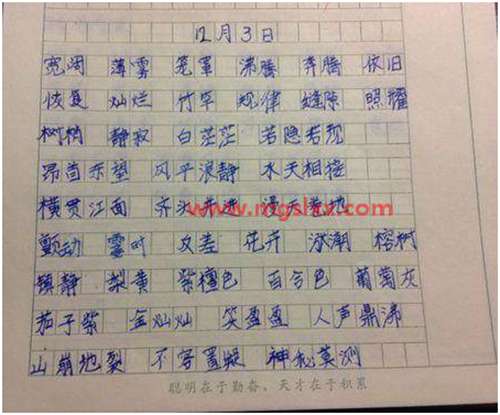 12月3日
宽阔 薄雾 笼罩 沸腾 奔腾 依旧
恢复 灿烂 竹竿 规律 缝隙 照耀
树梢 静寂 白茫茫 若隐若现
昂首东望 风平浪静 水天相接
横贯江面 齐头并进 漫天卷地
颤动 霎时 花卉 榕树
镇静 梨黄 紫檀色 百合色 葡萄灰
茄子紫 金灿灿 笑盈盈 人声鼎沸
山崩地裂 不容置疑 神秘莫测
聪明在于勤奋、天才在于积累